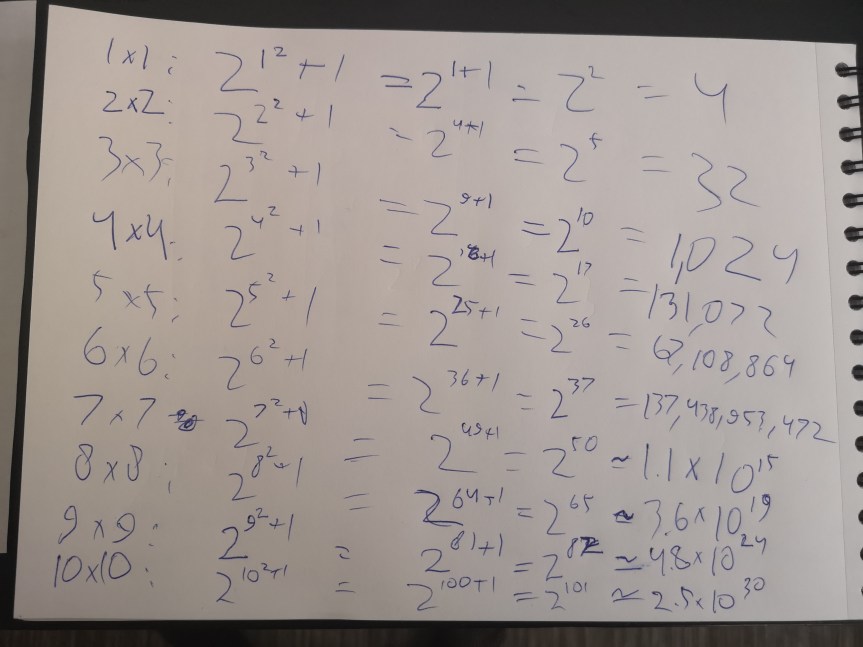 1x1: 2^1²+1 = 2^1+1 = 2² = 4
2x2: 2^2²+1 = 2^4+1 = 2⁵ = 32
3x3: 2^3²+1 = 2^9+1 = 2^10 = 1,024
4x4: 2^4²+1 = 2^16+1 = 2^17 = 131,072
5x5: 2^5²+1 = 2^25+1 = 2^26 = 67,108,864
6x6: 2^6²+1 = 2^36+1 = 2^37 = 137,438,953,472
7x7: 2^7²+1 = 2^49+1 = 2^50 ≃ 1.1x10^15
8x8: 2^8²+1 = 2^64+1 = 2^65 ≃ 3.6x10^19
9x9: 2^9²+1 = 2^81+1 = 2^82 ≃ 4.8x10^24
10x10: 2^10²+1 = 2^100+1 = 2^101 ≃ 2.5x10^30